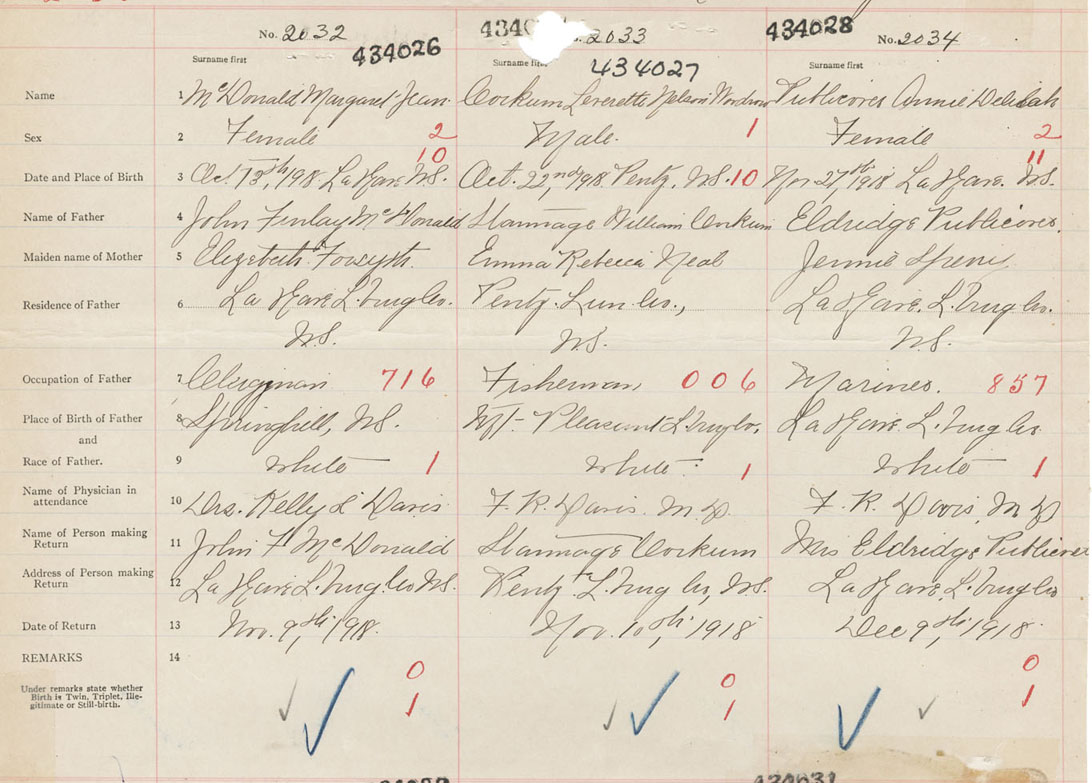 No. 2032 434026 434 2033 434027 434028 No. 2034
Surname first Surname fir Surname first
Name 1 McDonald Margaret Jean Corkum Leverette Nelson Woodrow Publicover Annie Delilah
Sex 2 Female 2 Male 1 Female 2
10 11
Date and Place of Birth 3 Oct. 13th, 1918 La Have N.S. Oct. 22nd, 1918 Pentz, N.S. 10 Nov 27th 1918 La Have. N.S.
Name of Father 4 John Finlay McDonald William Corkum Eldridge Publicover,
Maiden name of Mother 5 Elizabeth Forsyth. Emma Rebecca Jennie
Residence of Father 6 La Have L'burg Co. Pentz. Lun. Co., La Have. L'burg Co.
N.S. N.S. N.S.
Occupation of Father 7 Clergyman 716 Fisherman, 006 857
Place of Birth of Father 8 Springhill, N.S. Mt. Pleasant L'burg Co. La Have. L'burg Co.
and
Race of Father. 9 White 1 White 1 White 1
Name of Physician in attendance 10 Drs. Kelly & Davis F. R. Davis. M.D. F. R. Davis, M D
Name of Person making Return 11 John F McDonald Corkum Mrs Eldridge Publicover
Address of Person making Return 12 La Have L'burg. Co N.S. Pentz L'burg Co, N.S. La Have L'burg Co
Date of Return 13 Nov. 9th, 1918. Nov. 10th, 1918 Dec 9th, 1918
REMARKS 14
0 0 0
Under remarks state whether
Birth is Twin, Triplet, Ille-
gitimate or Still-birth.
1 1 1